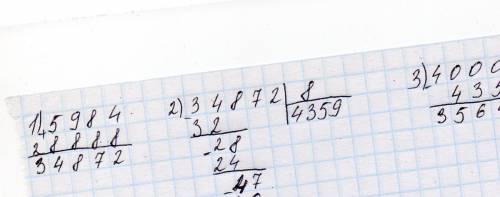 1) 5984
+
28888
34872
2) 34872 | 8
- 32 | 4359
- 28
24
- 47
3) 4000
- 435
3564